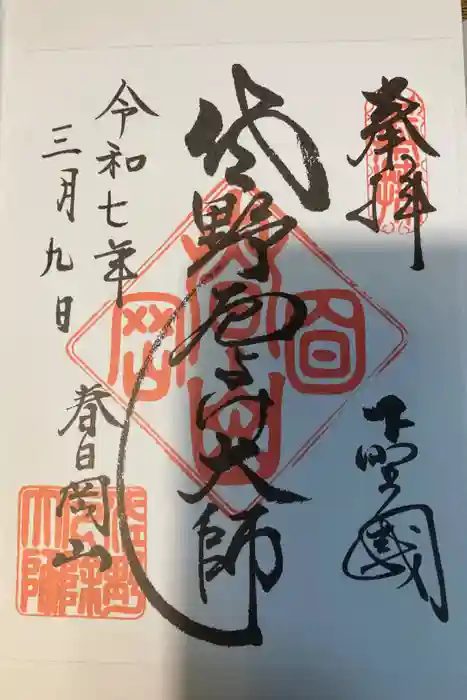 奉拝
下野國
佐野厄よけ大師
令和七年
三月九日
春日岡山